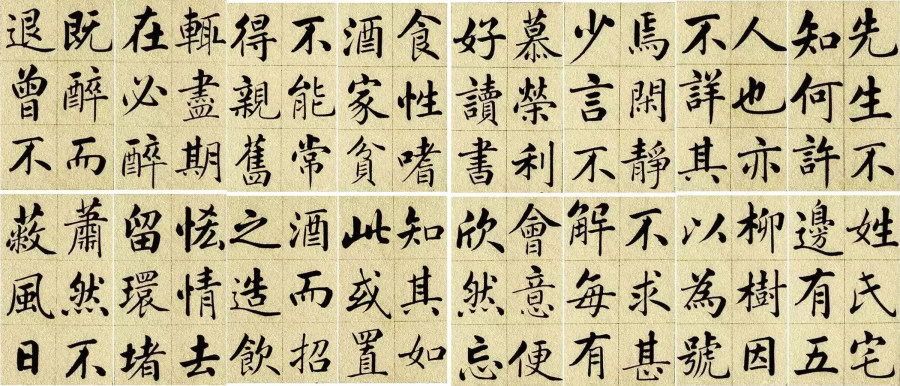 先生不
知何許
人也亦
不詳其
姓氏宅
邊有五
柳樹因
以為號
焉閑靜
少言不
慕榮利
好讀書
不求甚
解每有
會意便
欣然忘
食性嗜
酒家貧
不能常
得親舊
知其如
此或置
酒而招
之造飲
輒盡期
在必醉
既醉而
退曾不
恡情去
留環堵
蕭然不
蔽風日